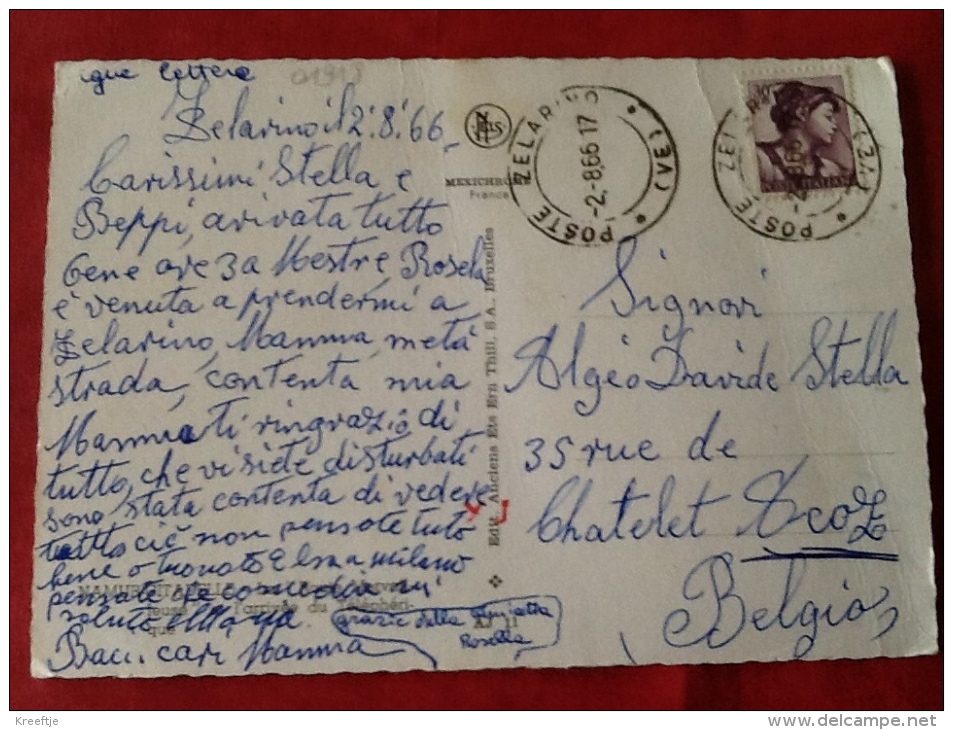 gue lettera
01913
Zelarino il 2.8.66
Carissimi Stella e
Beppi, arivata tutto
bene ore 3 a Mestre, Rosela
è venuta a prendermi a
Zelarino, Mamma, metà
strada, contenta mia
Mamma ti ringrazio di
tutto, che vi siete disturbati
sono stata contenta di vedere
tutto ciò non pensate tuto
bene o trovato Elsa a milano
pensate che
saluto
grazie della
Rosella
Baci. cari Mamma
NAMUR
l'arrivée du Téléphéri-
que
MEXICHROME
France
Edit. Anciens Ets Ern Thill, S.A., Bruxelles
POSTE ZELARINO (VE)
-2.-8.66 17
POSTE ZELARINO (VE)
POSTE ITALIANE
Signori
Algeo Davide Stella
35 rue de
Chatelet Acoz
Belgio
Kreeftje
delcampe.net